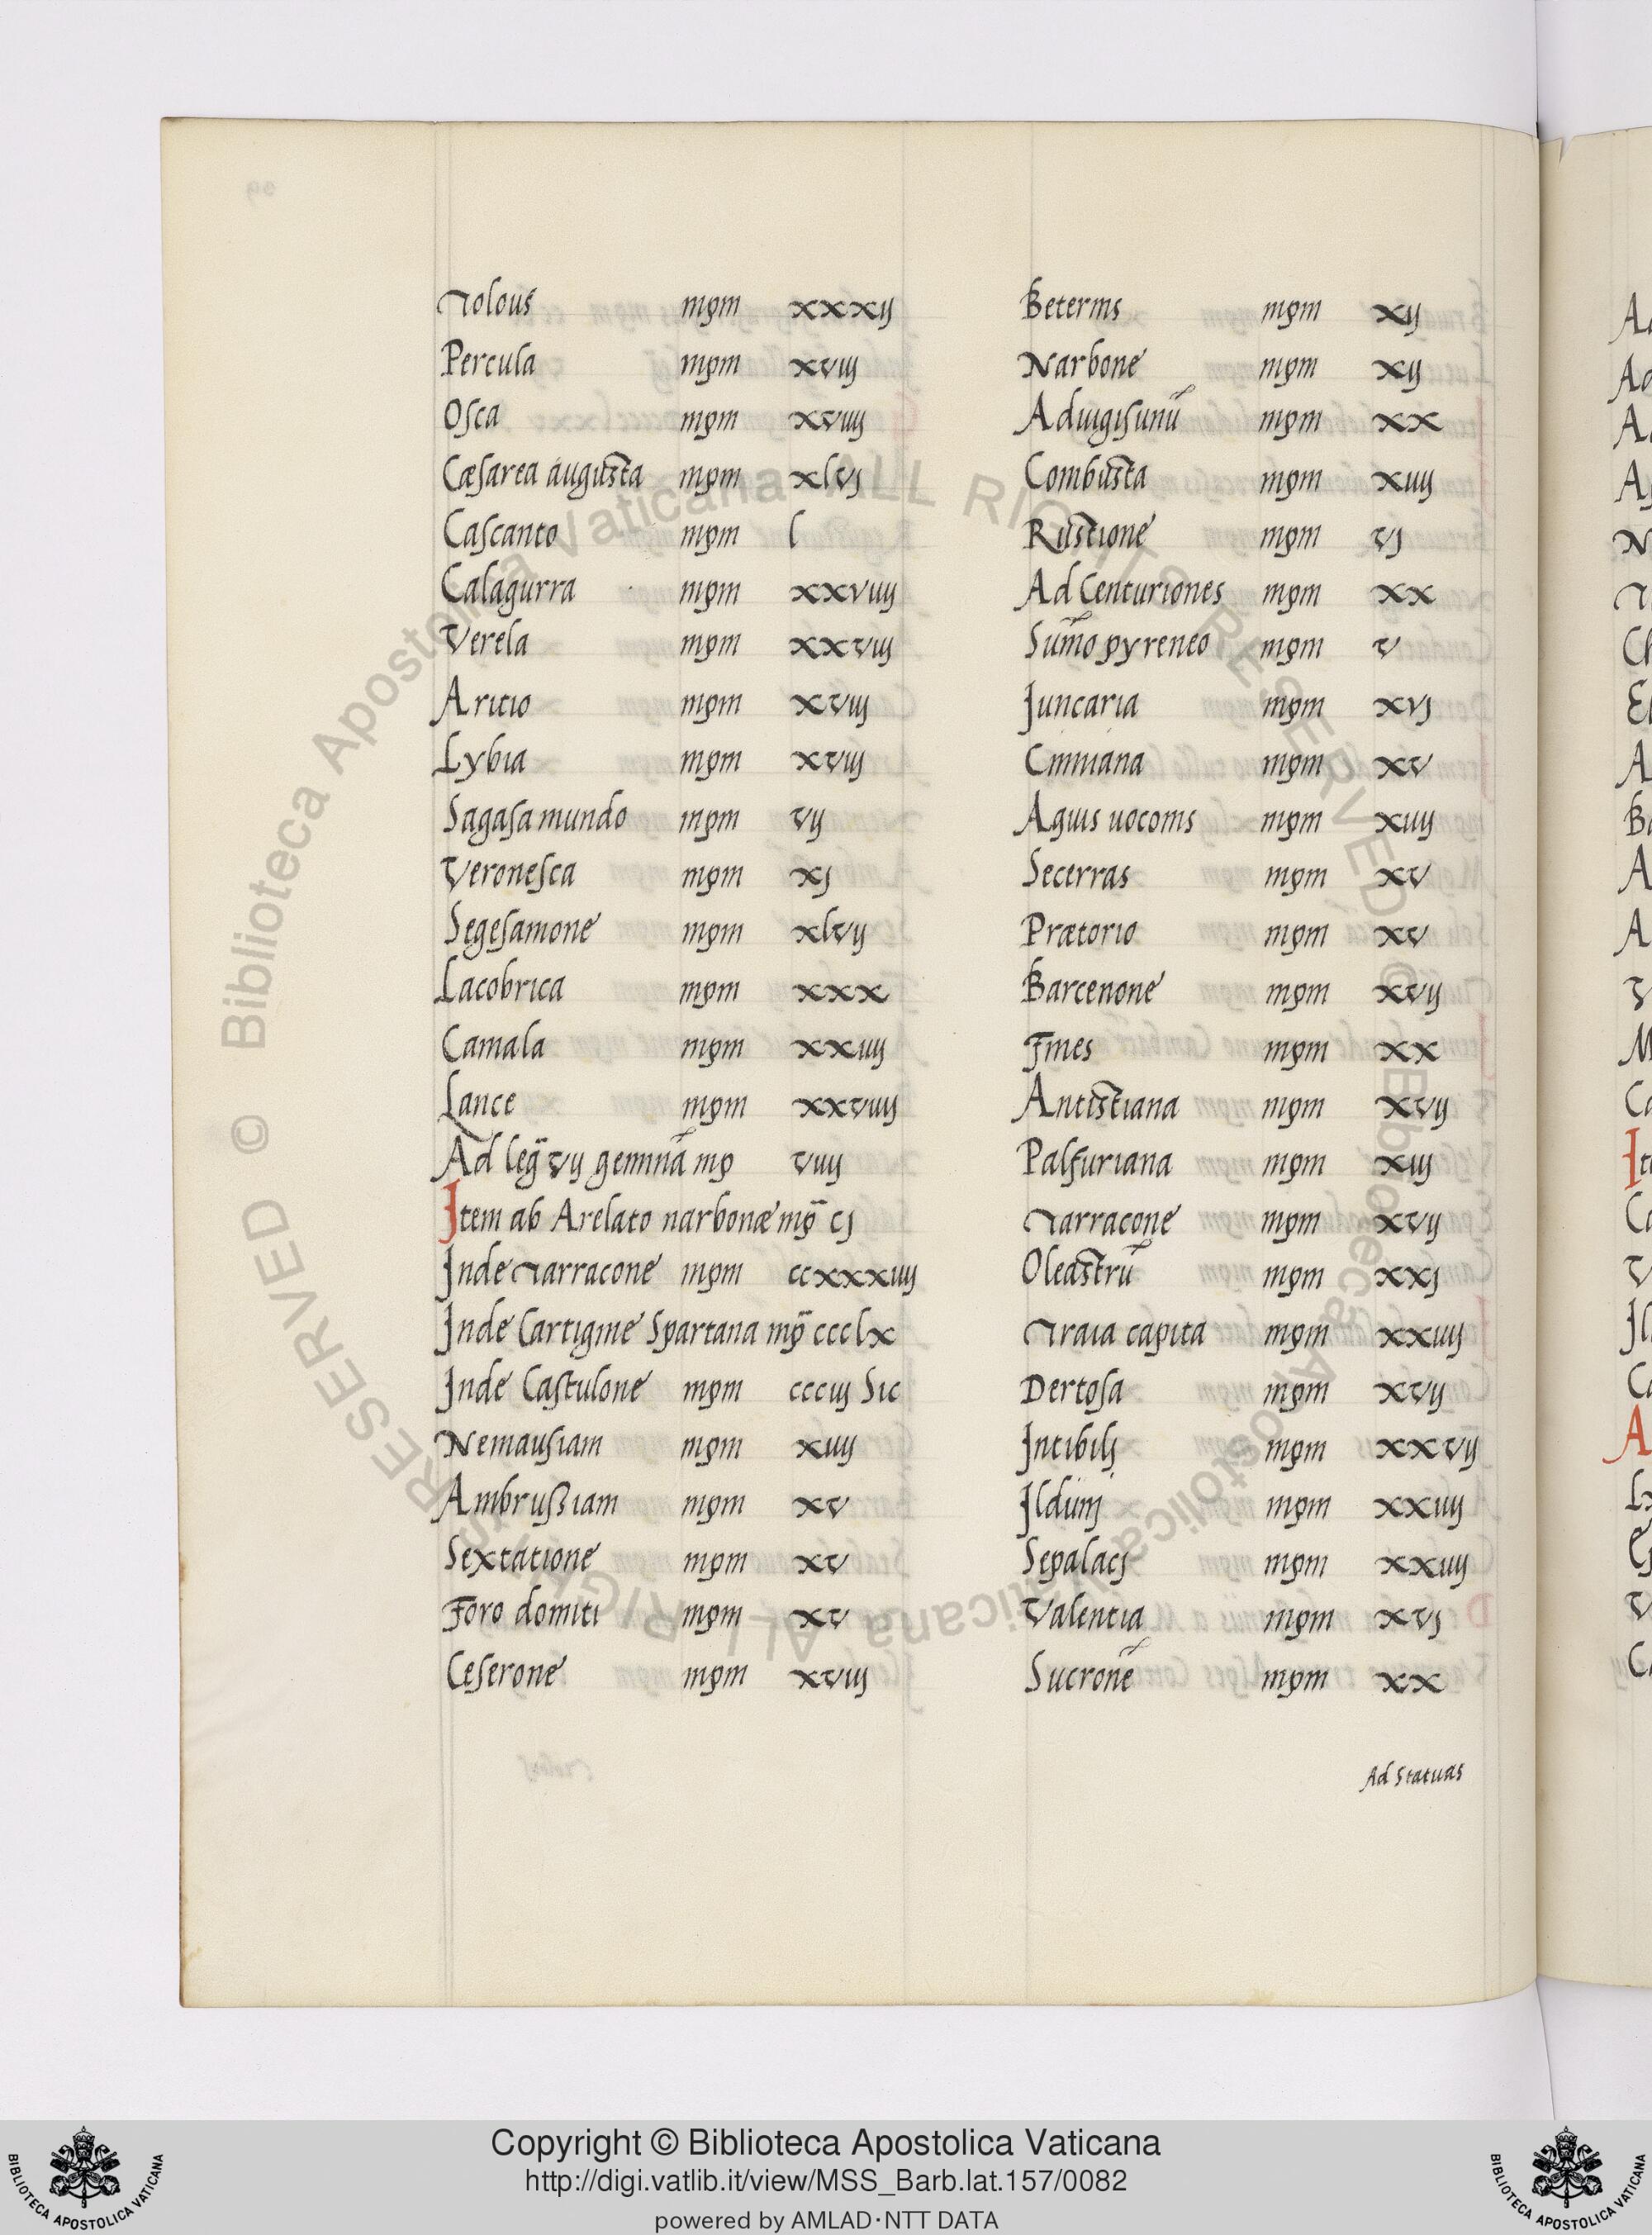 Tolous mpm xxxij
Percula mpm xviij
Osca mpm xviiij
Cæsarea augusta mpm xlvj
Cascanto mpm l
Calagurra mpm xxviiij
Verela mpm xxviij
Aritio mpm xviij
Lybia mpm xviij
Sagasa mundo mpm vij
Veronesca mpm xj
Segesamone mpm xlvij
Lacobrica mpm xxx
Camala mpm xxiiij
Lance mpm xxviiij
Ad leg̃ vij geminā mp viiij
Item ab Arelato narbonæ mp̃ cj
Inde Tarracone mpm ccxxxiiij
Inde Cartigine Spartana mp̃ ccclx
Inde Castulone mpm ccciij Sic
Nemausiam mpm xiiij
Ambrussiam mpm xv
Sextatione mpm xv
Foro domiti mpm xv
Ceserone mpm xviij
Beterris mpm xij
Narbone mpm xij
Aduigisunū mpm xx
Combusta mpm xiiij
Rustione mpm vj
Ad Centuriones mpm xx
Sum̃o pyreneo mpm v
Juncaria mpm xvj
Cinniana mpm xv
Aquis uoconis mpm xiiij
Secerras mpm xv
Prætorio mpm xv
Barcenone mpm xvij
Fines mpm xx
Antistiana mpm xvij
Palfuriana mpm xiij
Tarracone mpm xvij
Oleastrū mpm xxj
Traia capita mpm xxiiij
Dertosa mpm xvij
Intibilj mpm xxvij
Ildum mpm xxiiij
Sepalacj mpm xxiiij
Valentia mpm xvj
Sucronē mpm xx
Ad Statuas
© Biblioteca Apostolica Vaticana ALL RIGHTS RESERVED © Biblioteca Apostolica Vaticana ALL RIGHTS RESERVED
Copyright © Biblioteca Apostolica Vaticana
http://digi.vatlib.it/view/MSS_Barb.lat.157/0082
powered by AMLAD·NTT DATA
BIBLIOTECA APOSTOLICA VATICANA
BIBLIOTECA APOSTOLICA VATICANA